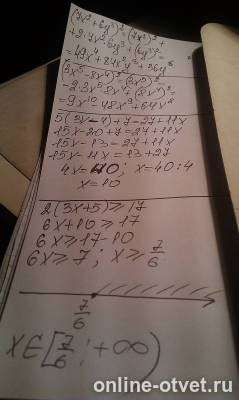 (7x²+6y³)²=(7x²)²+
+2·7x²·6y³+(6y³)²=
=49x⁴+84x²y³+36y⁶
(3x⁵-8x⁴)²=(3x⁵)²-
-2·3x⁵·8x⁴+(8x⁴)²=
=9x¹⁰-48x⁹+64x⁸
5(3x-4)+7=27+11x
15x-20+7=27+11x
15x-13=27+11x
15x-11x=13+27
4x=40; x=40:4
x=10
2(3x+5)≥17
6x+10≥17
6x≥17-10
6x≥7; x≥7/6
7/6
x∈[7/6;+∞)
online-otvet.ru